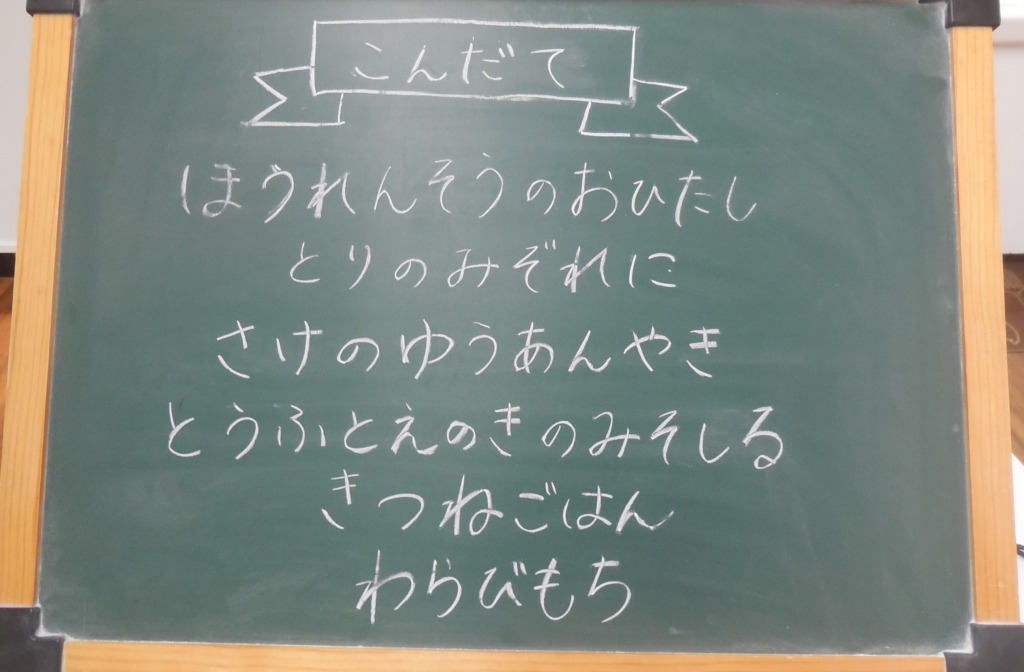 こんだて
ほうれんそうのおひたし
とりのみぞれに
さけのゆうあんやき
とうふとえのきのみそしる
きつねごはん
わらびもち